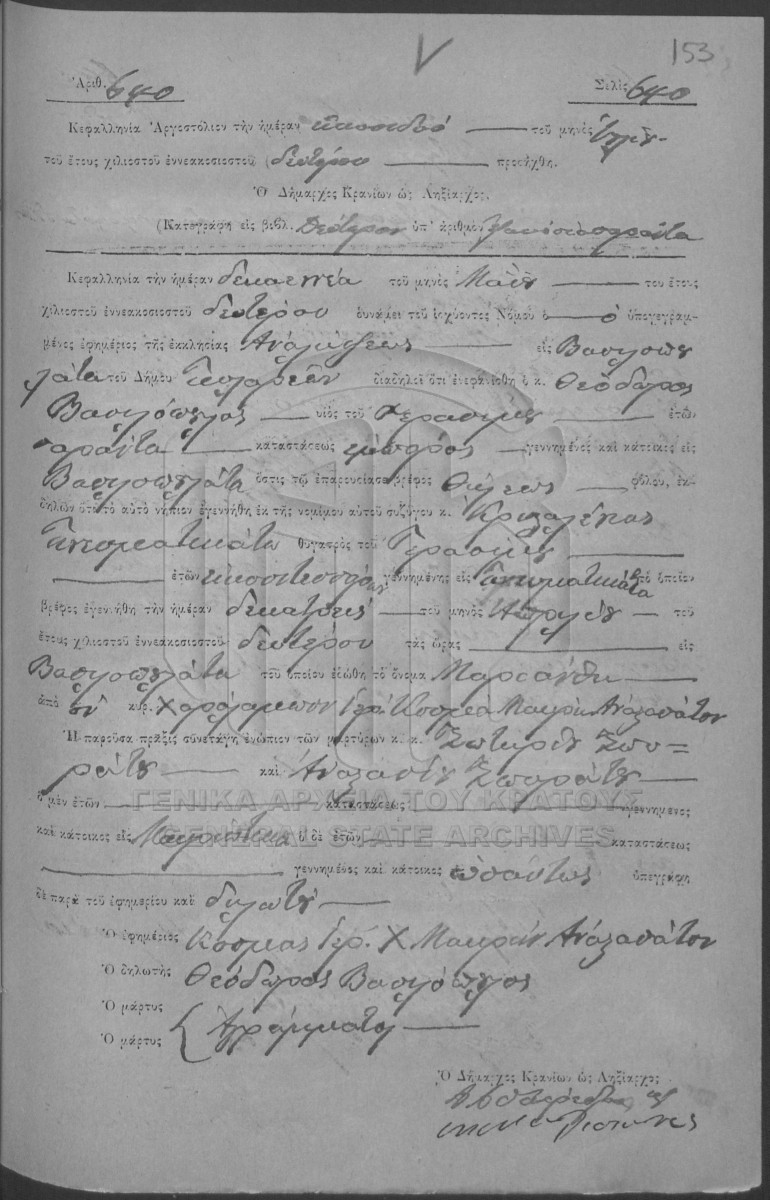 153
Ἀριθ. 640 Σελὶς 640
Κεφαλληνία Ἀργοστόλιον τὴν ἡμέραν εἰκοσιδύο τοῦ μηνὸς
τοῦ ἔτους χιλιοστοῦ ἐννεακοσιοστοῦ (δευτέρου προσήχθη.
Ὁ Δήμαρχος Κρανίων ὡς Ληξίαρχος.
(Κατεγράφη εἰς βιβλ. Δεύτερον ὑπ' ἀριθμὸν
Κεφαλληνία τὴν ἡμέραν δεκαεννέα τοῦ μηνὸς Μαΐου του ἔτους
χιλιοστοῦ ἐννεακοσιοστοῦ δευτέρου δυνάμει τοῦ ἰσχύοντος Νόμου ὁ ὁ ὑπογεγραμ-
μένος ἐφημέριος τῆς ἐκκλησίας Ἀναλήψεως εἰς Βασιλοπου
λάτα τοῦ Δήμου διαδηλοῖ ὅτι ἐνεφανίσθη ὁ κ. Θεόδωρος
Βασιλόπουλος υἱὸς τοῦ Γερασίμου ἐτῶν
σαράντα καταστάσεως ἔμπορος γεννημένος καὶ κάτοικος εἰς
Βασιλοπουλάτα ὅστις τῷ ἐπαρουσίασε βρέφος θήλεως φύλου, ἐκ-
δηλῶν ὅτι τὸ αὐτὸ νήπιον ἐγεννήθη ἐκ τῆς νομίμου αὐτοῦ συζύγου κ.
θυγατρὸς τοῦ Γερασίμου
ἐτῶν εἰκοσιτεσσάρων γεννημένης εἰς τὸ ὁποῖον
βρέφος ἐγεννήθη τὴν ἡμέραν δεκατρεῖς τοῦ μηνὸς Ἀπριλίου τοῦ
ἔτους χιλιοστοῦ ἐννεακοσιοστοῦ δευτέρου τὰς ὥρας εἰς
Βασιλοπουλάτα τοῦ ὁποίου ἐδώθη τὸ ὄνομα Μαριάνθη
ἀπὸ τὸν κυρ. Χαράλαμπον Ἱερ. Κοσμᾶ Μακρῆ Ἀναλαπάτον
Ἡ παροῦσα πρᾶξις συνετάγη ἐνώπιον τῶν μαρτύρων κ. κ. Σωτηρίου Σπυ=
ράτου καὶ
ὁ μὲν ἐτῶν καταστάσεως γεννημενος
καὶ κάτοικος εἰς ὁ δὲ ἐτῶν καταστάσεως
γεννημένος καὶ κάτοικος ὡσαύτως ὑπεγράφη
δὲ παρὰ τοῦ ἐφημερίου καὶ δηλωτοῦ
Ὁ ἐφημέριος Κοσμᾶς Ἱερ. Χ Μακρῆς
Ὁ δηλωτὴς Θεόδωρος Βασιλόπουλος
Ὁ μάρτυς
Ὁ μάρτυς Ἀγράμματοι
Ὁ Δήμαρχος Κρανίων ὡς Ληξίαρχος
ΓΕΝΙΚΑ ΑΡΧΕΙΑ ΤΟΥ ΚΡΑΤΟΥΣ
GENERAL STATE ARCHIVES